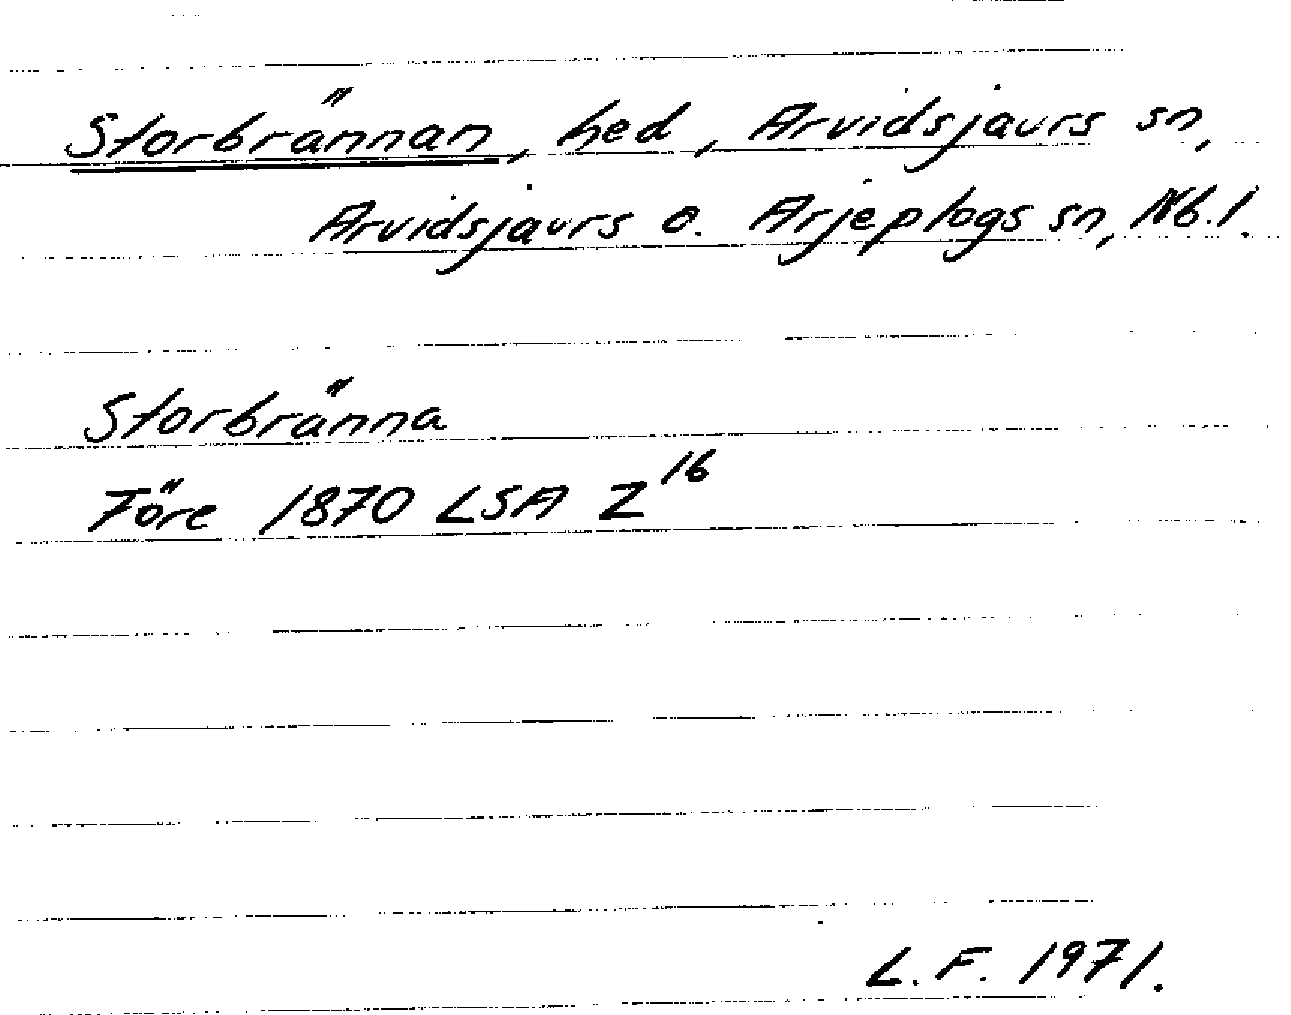 Storbrännan, hed, Arvidsjaurs sn,
Arvidsjaurs o. Arjeplogs sn, Nb.l.
Storbränna
Före 1870 LSA Z16
L.F. 1971.